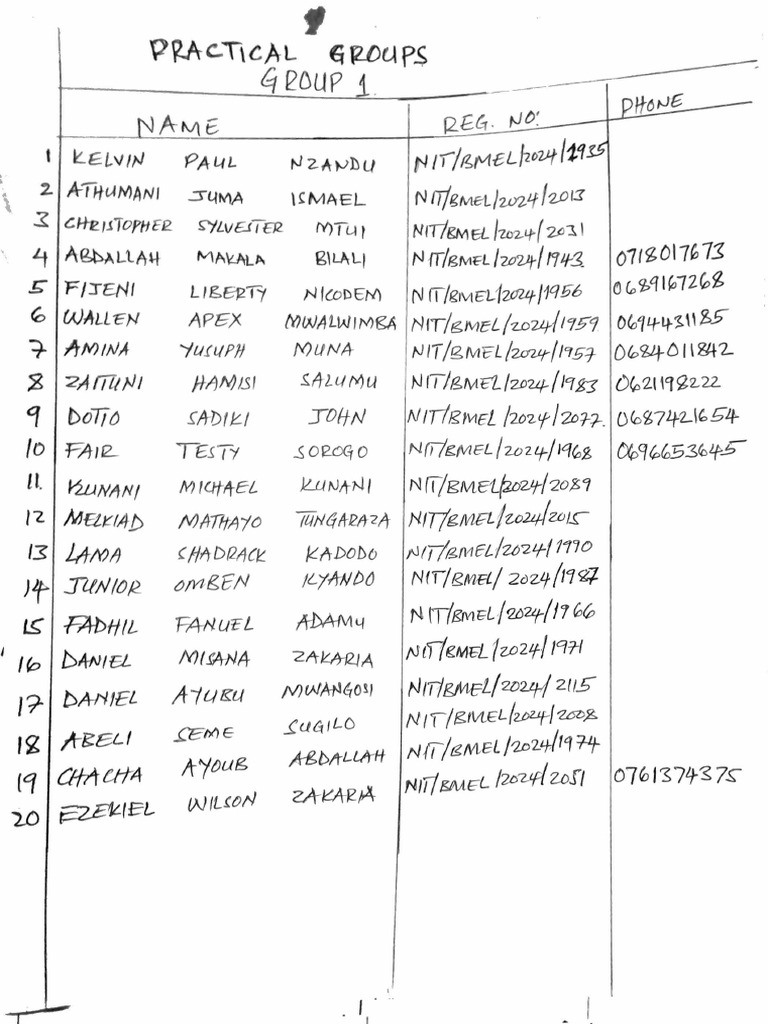 PRACTICAL GROUPS
GROUP 1.
NAME REG. NO: PHONE
1 KELVIN PAUL NZANDU NIT/BMEL/2024/1935
2 ATHUMANI JUMA ISMAEL NIT/BMEL/2024/2013
3 CHRISTOPHER SYLVESTER MTUI NIT/BMEL/2024/2031
4 ABDALLAH MAKALA BILALI NIT/BMEL/2024/1943 0718017673
5 FIJENI LIBERTY NICODEM NIT/BMEL/2024/1956 0689167268
6 WALLEN APEX MWALWIMBA NIT/BMEL/2024/1959 0694431185
7 AMINA YUSUPH MUNA NIT/BMEL/2024/1957 0684011842
8 ZAITUNI HAMISI SALUMU NIT/BMEL/2024/1983 0621198222
9 DOTIO SADIKI JOHN NIT/BMEL/2024/2077. 0687421654
10 FAIR TESTY SOROGO NIT/BMEL/2024/1968 0696653645
11. KUNANI MICHAEL KUNANI NIT/BMEL/2024/2089
12 MELKIAD MATHAYO TUNGARAZA NIT/BMEL/2024/2015
13 LAMA SHADRACK KADODO NIT/BMEL/2024/1990
14 JUNIOR OMBEN KYANDO NIT/BMEL/2024/1987
15 FADHIL FANUEL ADAMU NIT/BMEL/2024/1966
16 DANIEL MISANA ZAKARIA NIT/BMEL/2024/1971
17 DANIEL AYUBU MWANGOSI NIT/BMEL/2024/2115
18 ABELI SEME SUGILO NIT/BMEL/2024/2008
19 CHACHA AYOUB ABDALLAH NIT/BMEL/2024/1974
20 EZEKIEL WILSON ZAKARIA NIT/BMEL/2024/2051 0761374375